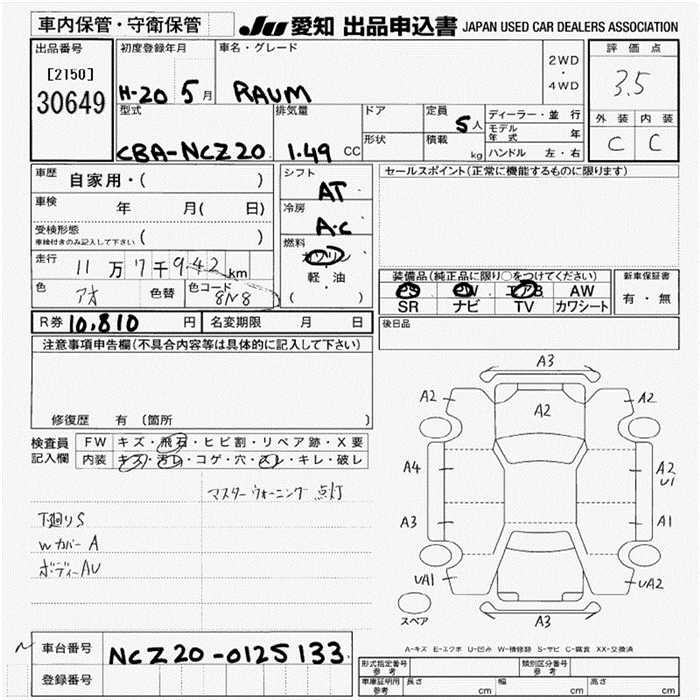 車内保管・守衛保管
JU 愛知 出品申込書 JAPAN USED CAR DEALERS ASSOCIATION
出品番号
[2150]
30649
初度登録年月
H-20 5月
車名・グレード
RAUM
2WD
・
4WD
評価点
3.5
外装 内装
C C
型式
CBA-NCZ20
排気量
1.49 CC
ドア
形状
定員
5人
積載
kg
ディーラー・並行
モデル年式 年
ハンドル 左・右
車歴 自家用・( )
車検 年 月( 日)
受検形態
車検付きのみ記入して下さい ( )
走行 11万7千942km
色 アオ 色替 色コード 8N8
シフト
AT
冷房
A・C
燃料
ガソリン
軽・油
( )
セールスポイント(正常に機能するものに限ります)
装備品(純正品に限り○をつけてください)
PS PW エアB AW
SR ナビ TV カワシート
新車保証書
有・無
後日品
R券 10,810円 名変期限 月 日
注意事項申告欄(不具合内容等は具体的に記入して下さい)
修復歴 有 〔箇所 〕
検査員
記入欄
FW キズ・飛石・ヒビ割・リペア跡・X要
内装 キズ・汚レ・コゲ・穴・スレ・キレ・破レ
マスターウォーニング点灯
下廻りS
Wカバー A
ボディーAU
A3
A2 A2 A2
A4 A2
U1
A3 A1
UA1 UA2
A3
スペア
A-キズ E-エクボ U-凹み W-補修跡 S-サビ C-腐食 XX-交換済
車台番号 NCZ20-0125133
登録番号
形式指定番号
参考
類別区分番号
参考
車庫証明用
参考
長さ cm 幅 cm 高さ cm